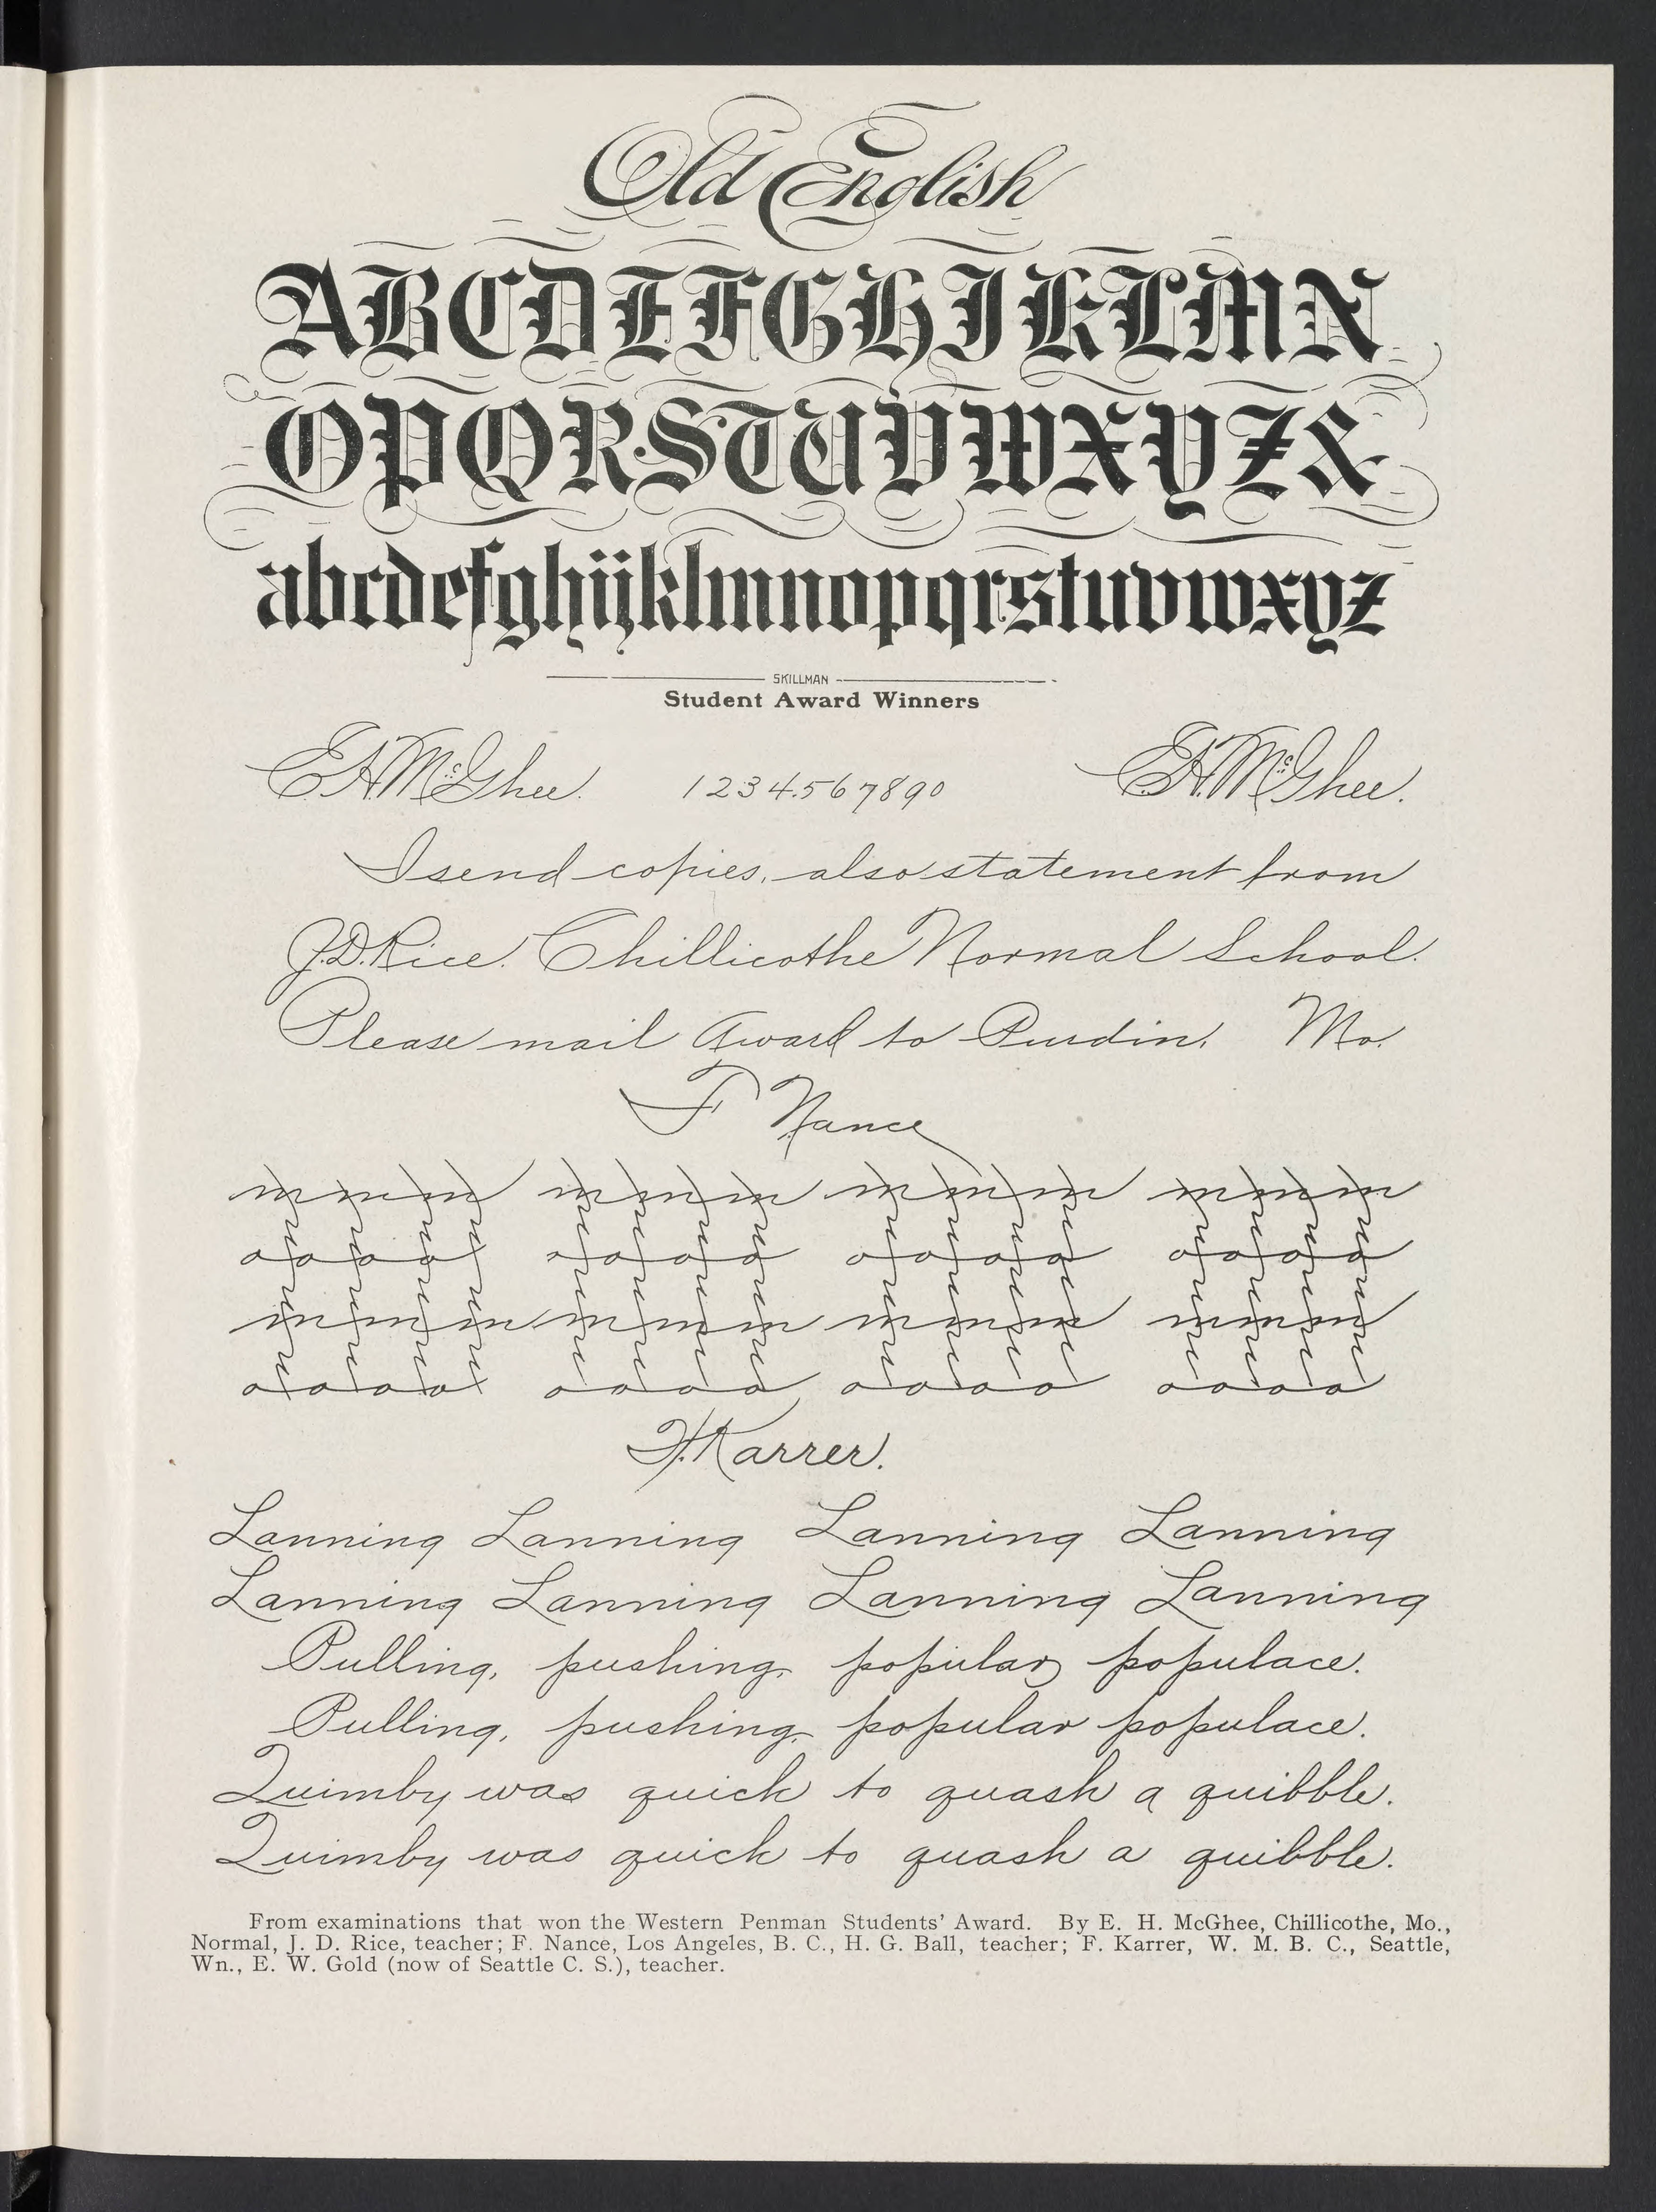 Old English
ABCDEFGHIKLMN
OPQRSTUVWXYZ&
abcdefghijklmnopqrstuvwxyz
SKILLMAN
Student Award Winners
E.H.McGhee. 1234567890 E.H.McGhee.
I send copies, also statement from
J.D.Rice. Chillicothe Normal School.
Please mail Award to Purdin, Mo.
F Nance
m m m m m m m m m m m m
o o o o o o o o o o o o o o o o
m m m m m m m m m m m m
o o o o o o o o o o o o o o o o
F.Karrer.
Lanning Lanning Lanning Lanning
Lanning Lanning Lanning Lanning
Pulling, pushing, popular populace.
Pulling, pushing, popular populace.
Quimby was quick to quash a quibble.
Quimby was quick to quash a quibble.
From examinations that won the Western Penman Students' Award. By E. H. McGhee, Chillicothe, Mo.,
Normal, J. D. Rice, teacher; F. Nance, Los Angeles, B. C., H. G. Ball, teacher; F. Karrer, W. M. B. C., Seattle,
Wn., E. W. Gold (now of Seattle C. S.), teacher.